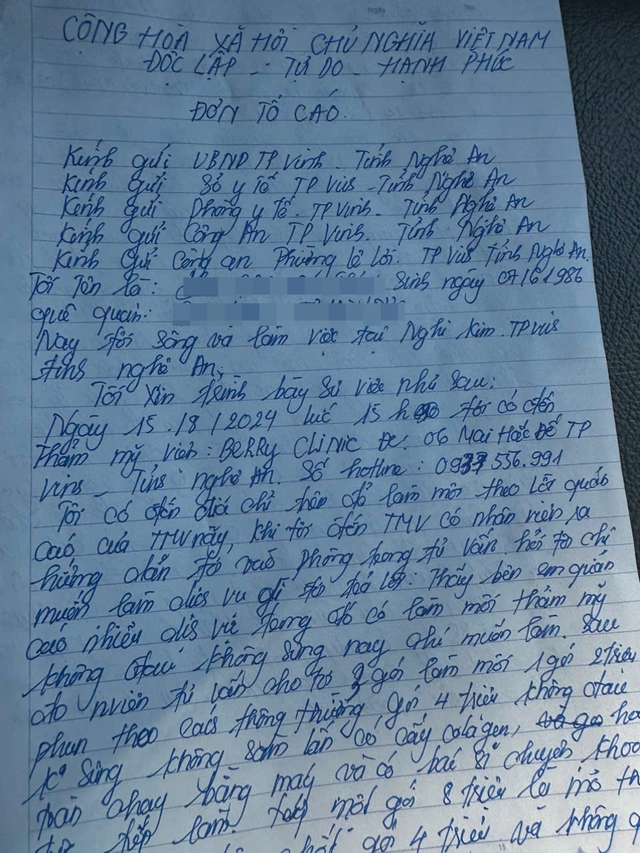 CỘNG HOÀ XÃ HỘI CHỦ NGHĨA VIỆT NAM
ĐỘC LẬP - TỰ DO - HẠNH PHÚC
ĐƠN TỐ CÁO.
Kính gửi UBND TP Vinh. Tỉnh Nghệ An
Kính gửi Sở y Tế TP Vinh - Tỉnh Nghệ An
Kính gửi Phòng y Tế. TP Vinh. Tỉnh Nghệ An
Kính gửi Công An TP Vinh. Tỉnh Nghệ An
Kính Gửi Công an Phường lê lợi. TP Vinh Tỉnh Nghệ An.
Tôi Tên là: Sinh ngày 1986
quê quán:
Nay tôi sống và làm việc tại Nghi Kim. TP Vinh
tỉnh nghệ An,
Tôi xin trình bày sự việc như sau:
Ngày 15/8/2024 lúc 15h tôi có đến
Thẩm mỹ viện: BERRY CLINIC Đc: 06 Mai Hắc Đế TP
Vinh - Tỉnh nghệ An. Số hotline: 0937 556.991
Tôi có đến địa chỉ trên để làm môi theo lời quảng
cáo của TMV này, khi tôi đến TMV có nhân viên ra
hướng dẫn tôi vào phòng trong tư vấn hỏi tôi chị
muốn làm dịch vụ gì tôi trả lời: Thấy bên em quảng
cáo nhiều dịch vụ trong đó có làm môi thẩm mỹ
không đau không sưng nay chị muốn làm. Sau
đó nviên tư vấn cho tôi 2 gói làm môi 1 gói 2 triệu
phun theo cách thông thường gói 4 triệu không đau
ko sưng không sâm lần có cấy colagen,
toàn chạy bằng máy và có bác sĩ chuyên khoa
tiếp làm. tiếp một gói 8 triệu là
gói 4 triệu và không